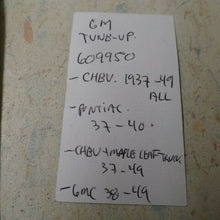 GM
TUNE-UP.
609950
- CHEV. 1937-49
ALL
- PONTIAC.
37-40.
- CHEV + MAPLE LEAF TRUCK
37-49
- GMC 38-49